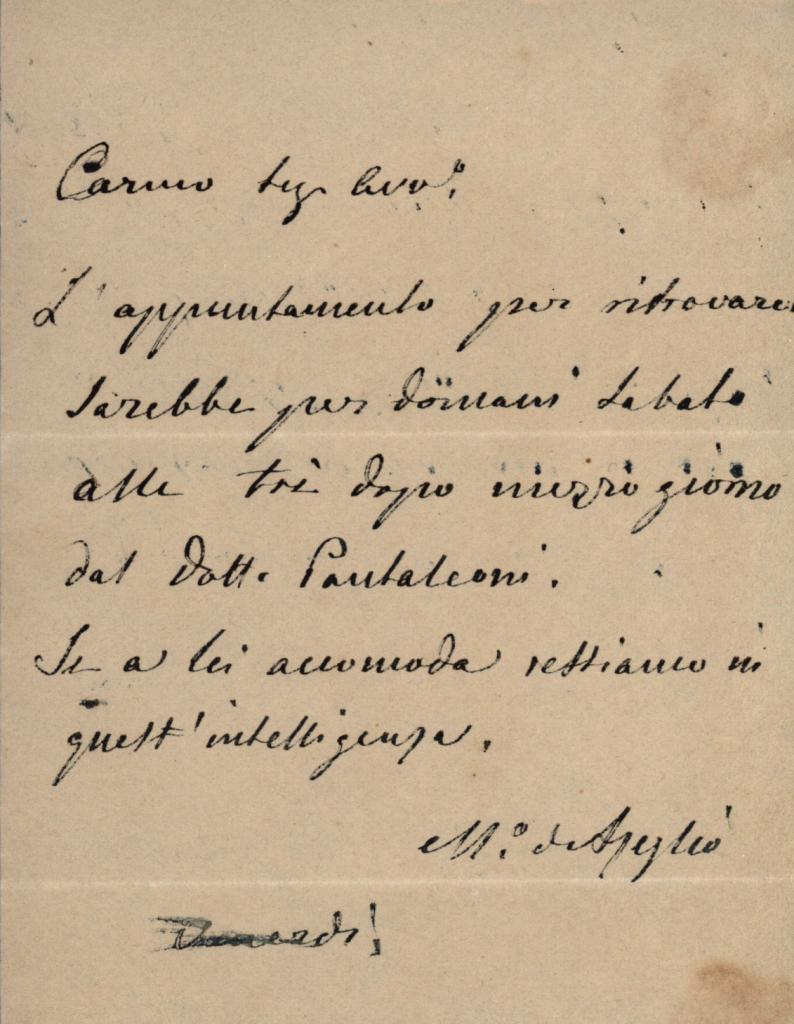 Carmo Sig Avv.o
L'appuntamento per ritrovarci
sarebbe per domani sabato
alle tre dopo mezzo giorno
dal Dott. Pantaleoni.
Se a lei accomoda restiamo in
quest'intelligenza.
M.o d'Azeglio
Venerdì